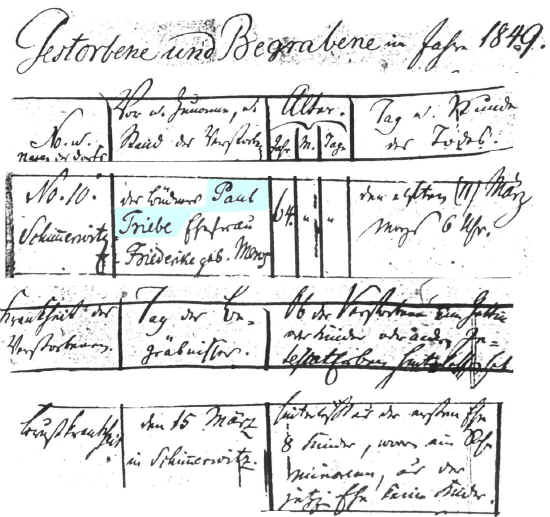 Gestorbene und Begrabene im Jahre 1849.
No. u.
Namen des Dorfs
Vor u. Zuname, u.
Stand der Verstorb.
Alter.
Jahr M. Tage
Tag u. Stunde
des Todes.
No. 10.
Schmerwitz
der Büdner Paul
Triebe Ehefrau
Friederike geb. Mens
64. " "
den elften (11) März
morgs 6 Uhr.
Krankheit der
Verstorbenen.
Tag der Be-
gräbnisse.
Ob der Verstorbene einen Gatten
oder Kinder oder andere
hinterlassen hat
Brustkrankheit
den 15 März
in Schmerwitz.
hinterläßt aus der ersten Ehe
8 Kinder, wovon ein
minorenn, aus der
jetzig Ehe keine Kinder.